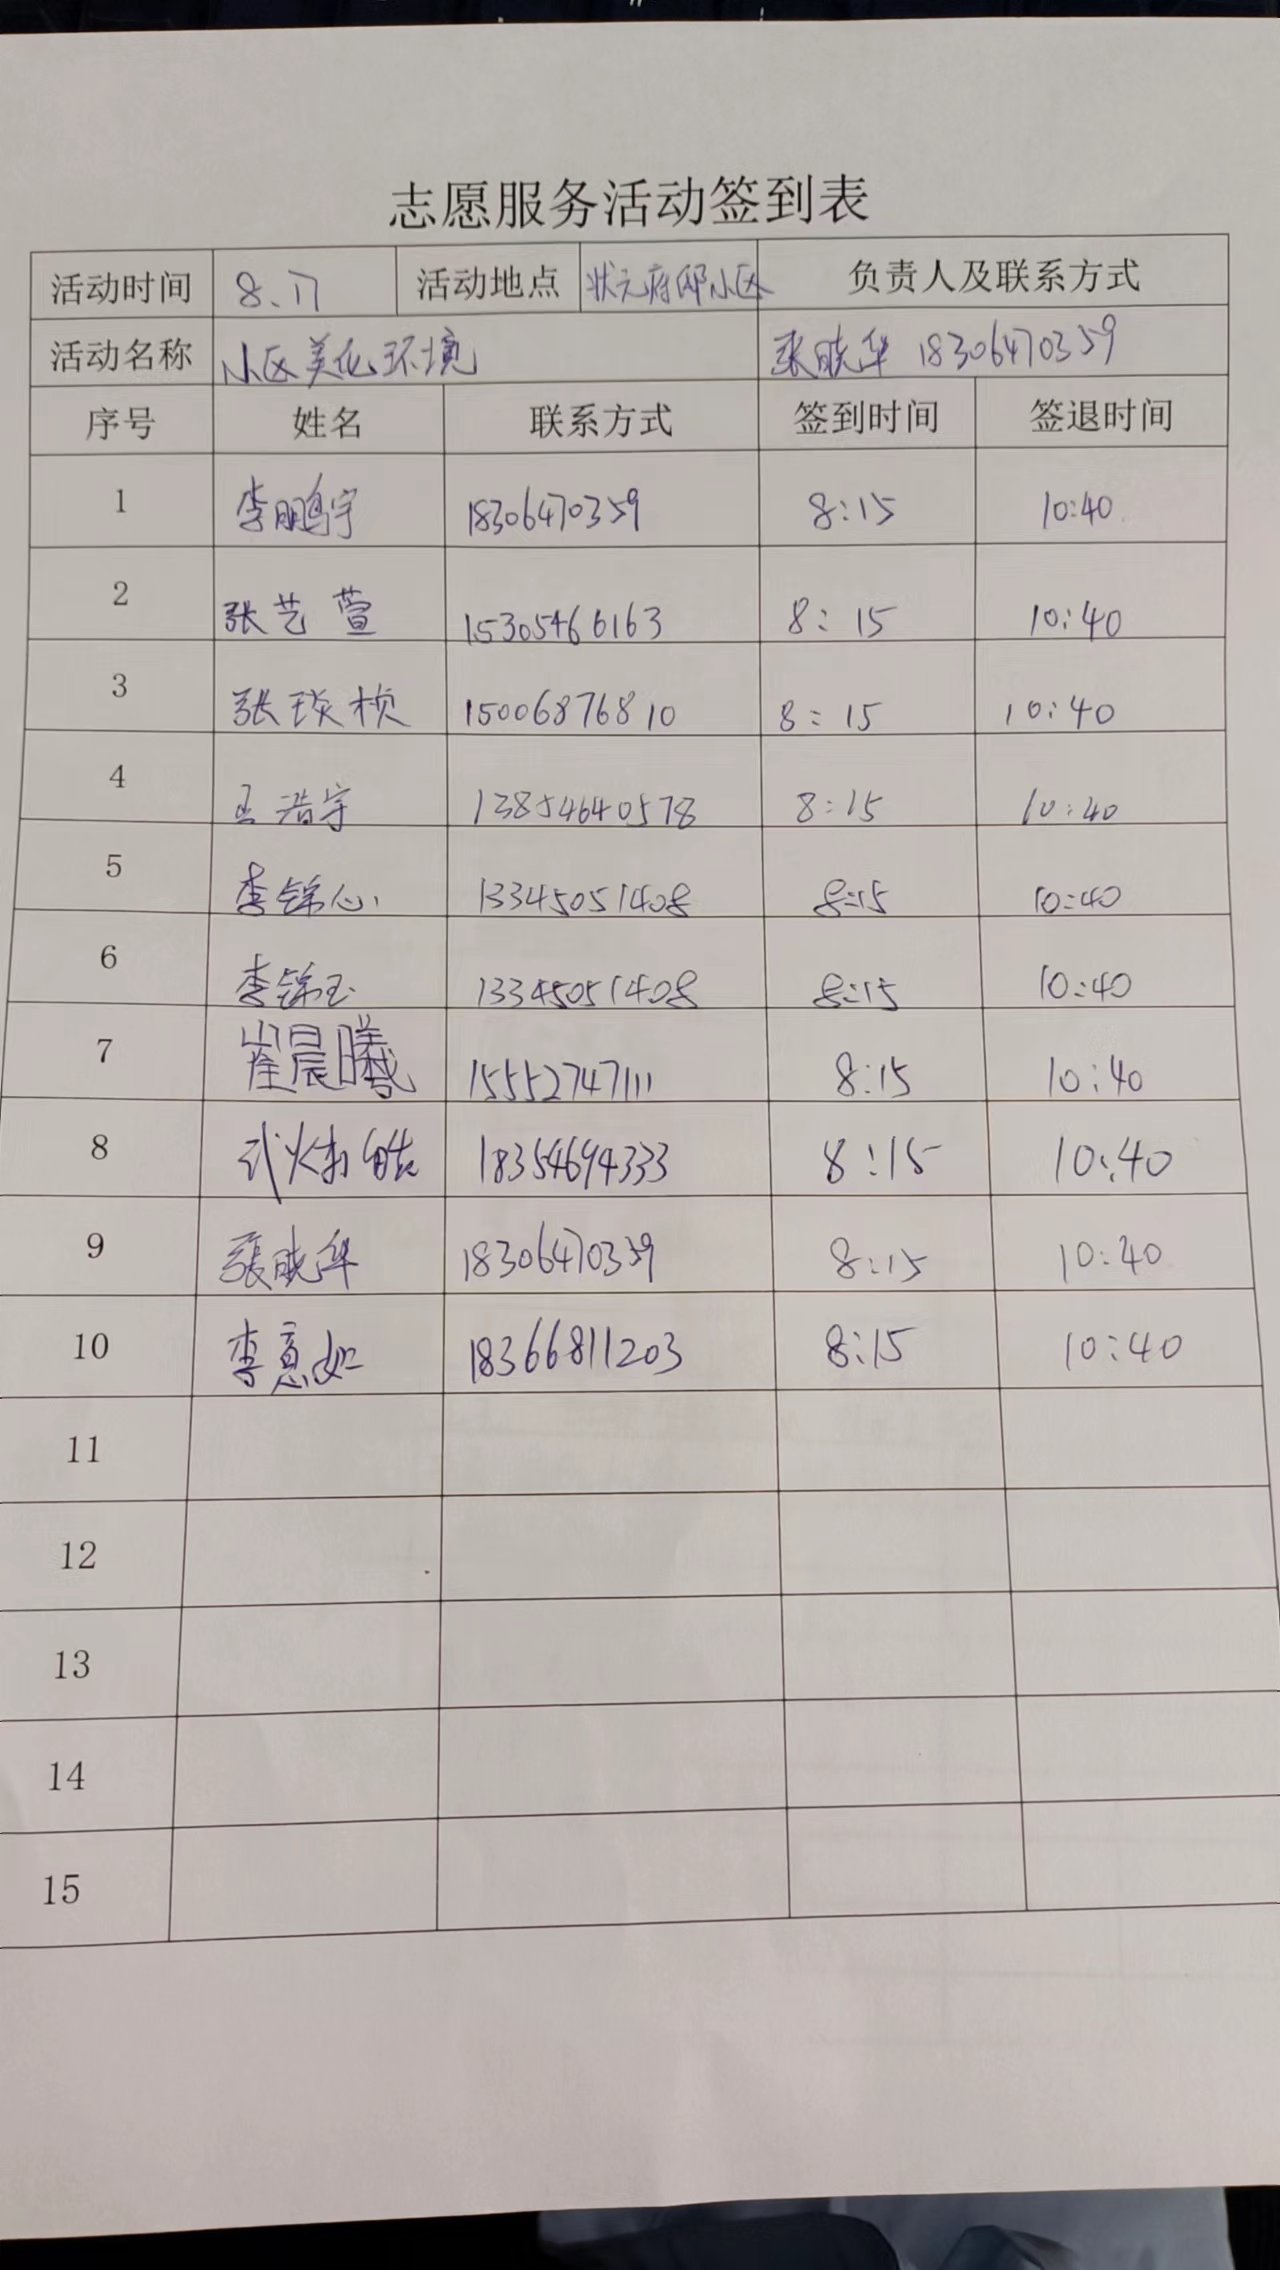 志愿服务活动签到表
活动时间 8.17 活动地点 状元府邸小区 负责人及联系方式
活动名称 小区美化环境 张晓华 18306470359
序号 姓名 联系方式 签到时间 签退时间
1 李鹏宇 18306470359 8:15 10:40
2 张艺萱 15305466163 8:15 10:40
3 张琰桢 15006876810 8:15 10:40
4 王浩宇 13854640578 8:15 10:40
5 李锦心 13345051408 8:15 10:40
6 李锦玉 13345051408 8:15 10:40
7 崔晨曦 15552747111 8:15 10:40
8 18354694333 8:15 10:40
9 張晓华 18306470359 8:15 10:40
10 李意如 18366811203 8:15 10:40
11
12
13
14
15